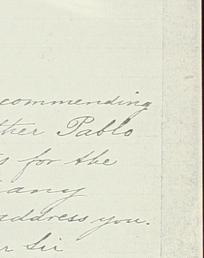 commending
ther Pablo
s for the
any
address you.
r Sir